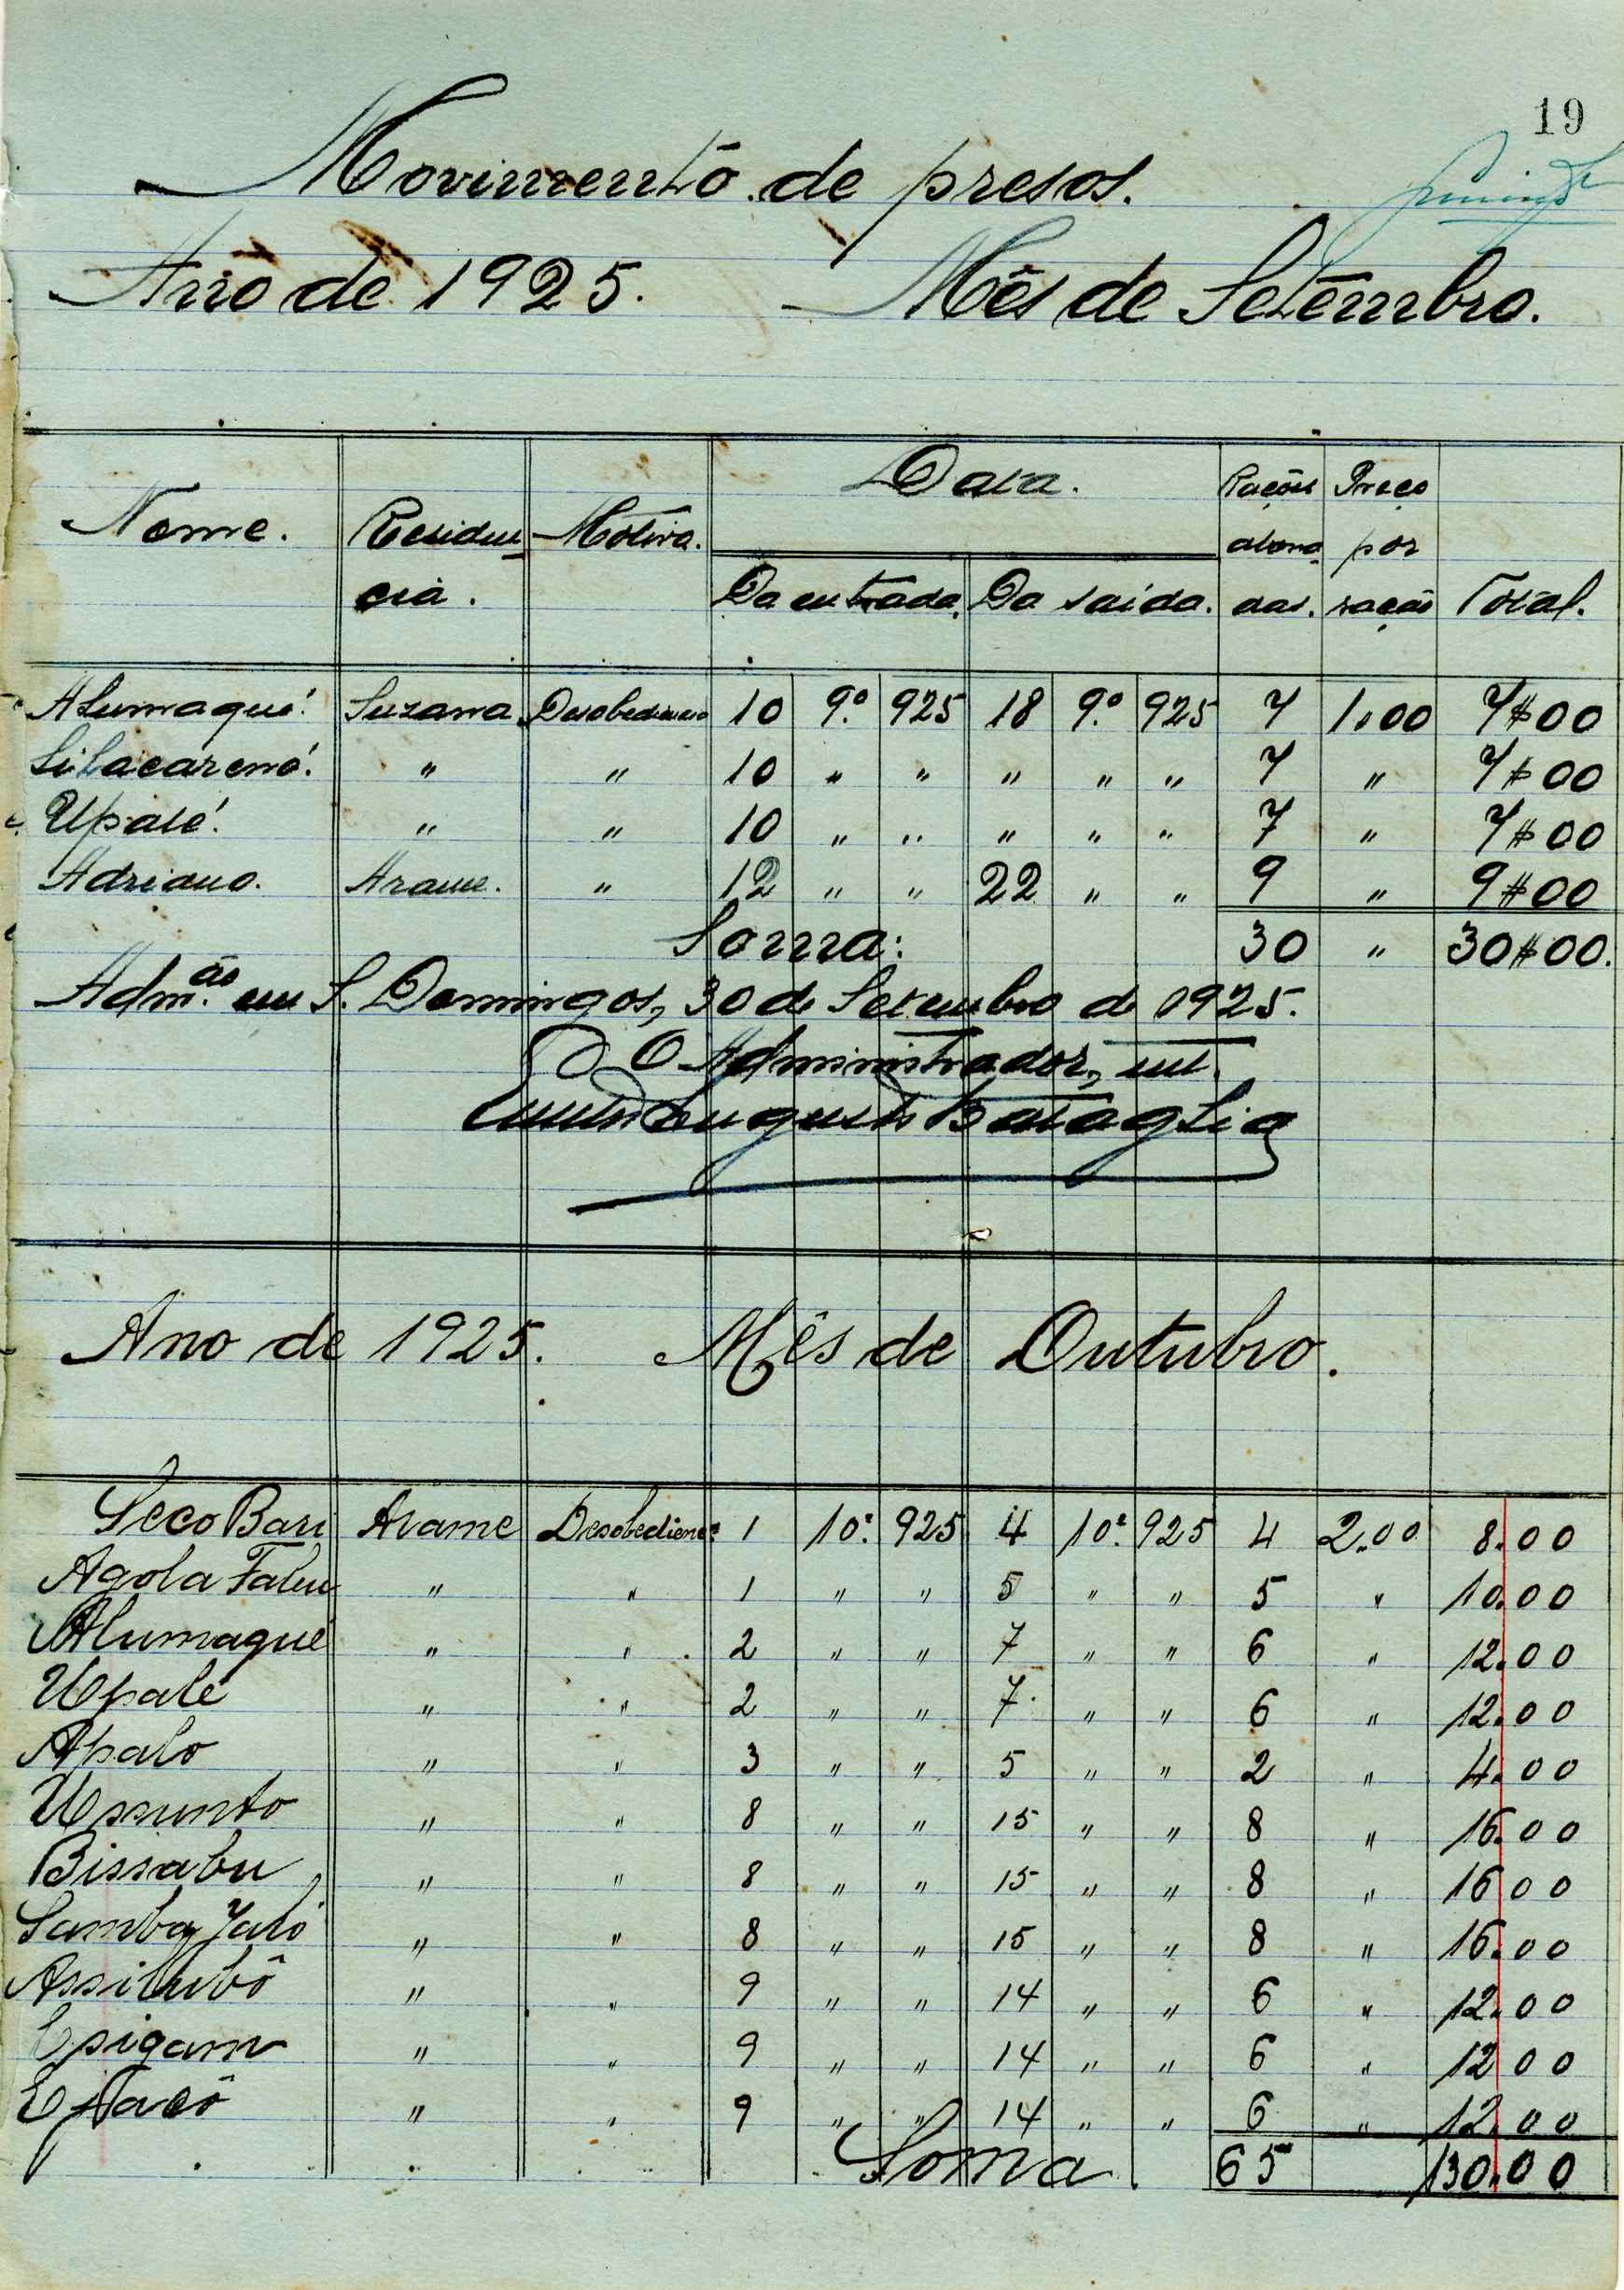 19
Movimento de presos.
Ano de 1925. Mês de Setembro.
Nome. Residen- Motivo. Data. Rações Preço
abona- por
cia. Da entrada. Da saída. das. ração Total.
Alumaqué. Suzana Desobediencia 10 9.º 925 18 9.º 925 7 1.00 7$00
Silacarenó. " " 10 " " " " " 7 " 7$00
Upalé. " " 10 " " " " " 7 " 7$00
Adriano. Arame. " 12 " " 22 " " 9 " 9$00
Soma: 30 " 30$00.
Adm.ão em S. Domingos, 30 de Setembro de 1925.
O Administrador, int.
Augusto Bataglia
Ano de 1925. Mês de Outubro.
Seco Bari Arame Desobedienc.ª 1 10.º 925 4 10.º 925 4 2.00 8.00
Agola Fabu " " 1 " " 5 " " 5 " 10.00
Alumaqué " " 2 " " 7 " " 6 " 12.00
Upale " " 2 " " 7 " " 6 " 12.00
Apalo " " 3 " " 5 " " 2 " 4.00
Ussunto " " 8 " " 15 " " 8 " 16.00
Bissabu " " 8 " " 15 " " 8 " 16 00
Samba Jaló " " 8 " " 15 " " 8 " 16.00
Assilubô " " 9 " " 14 " " 6 " 12.00
" " 9 " " 14 " " 6 " 12 00
" " 9 " " 14 " " 6 " 12.00
Soma 65 130.00